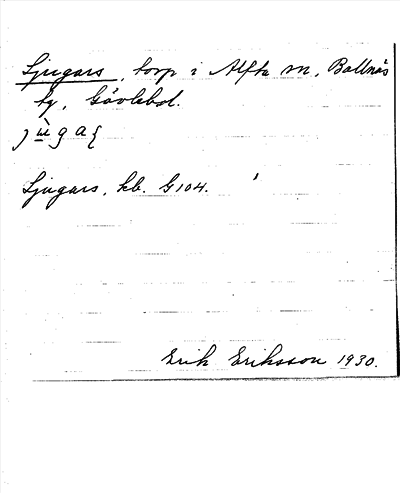 Ljugars, torp i Alfta sn, Bollnäs
tg, Gävlebol.
jùga{
Ljugars, kb. G104.
Erik Eriksson 1930.